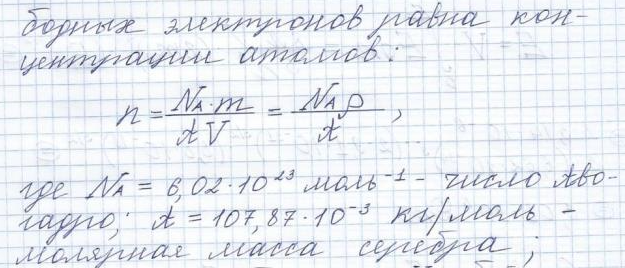 бодных электронов равна кон-
центрации атомов:
n = N_A·m / AV = N_A ρ / A ,
где N_A = 6,02·10²³ моль⁻¹ - число Аво-
гадро; A = 107,87·10⁻³ кг/моль -
молярная масса серебра;